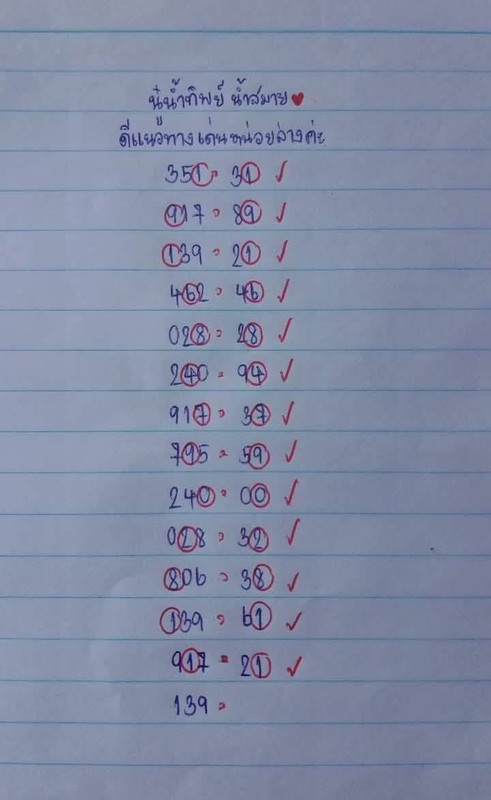 นี่น้ำทิพย์ น้ำสมาย ♥
ดีแนวทางเด่นหน่วยล่างค่ะ
351 = 31 ✓
917 = 89 ✓
139 = 21 ✓
462 = 46 ✓
028 = 28 ✓
240 = 94 ✓
917 = 37 ✓
795 = 59 ✓
240 = 00 ✓
028 = 32 ✓
806 = 38 ✓
139 = 61 ✓
917 = 21 ✓
139 =